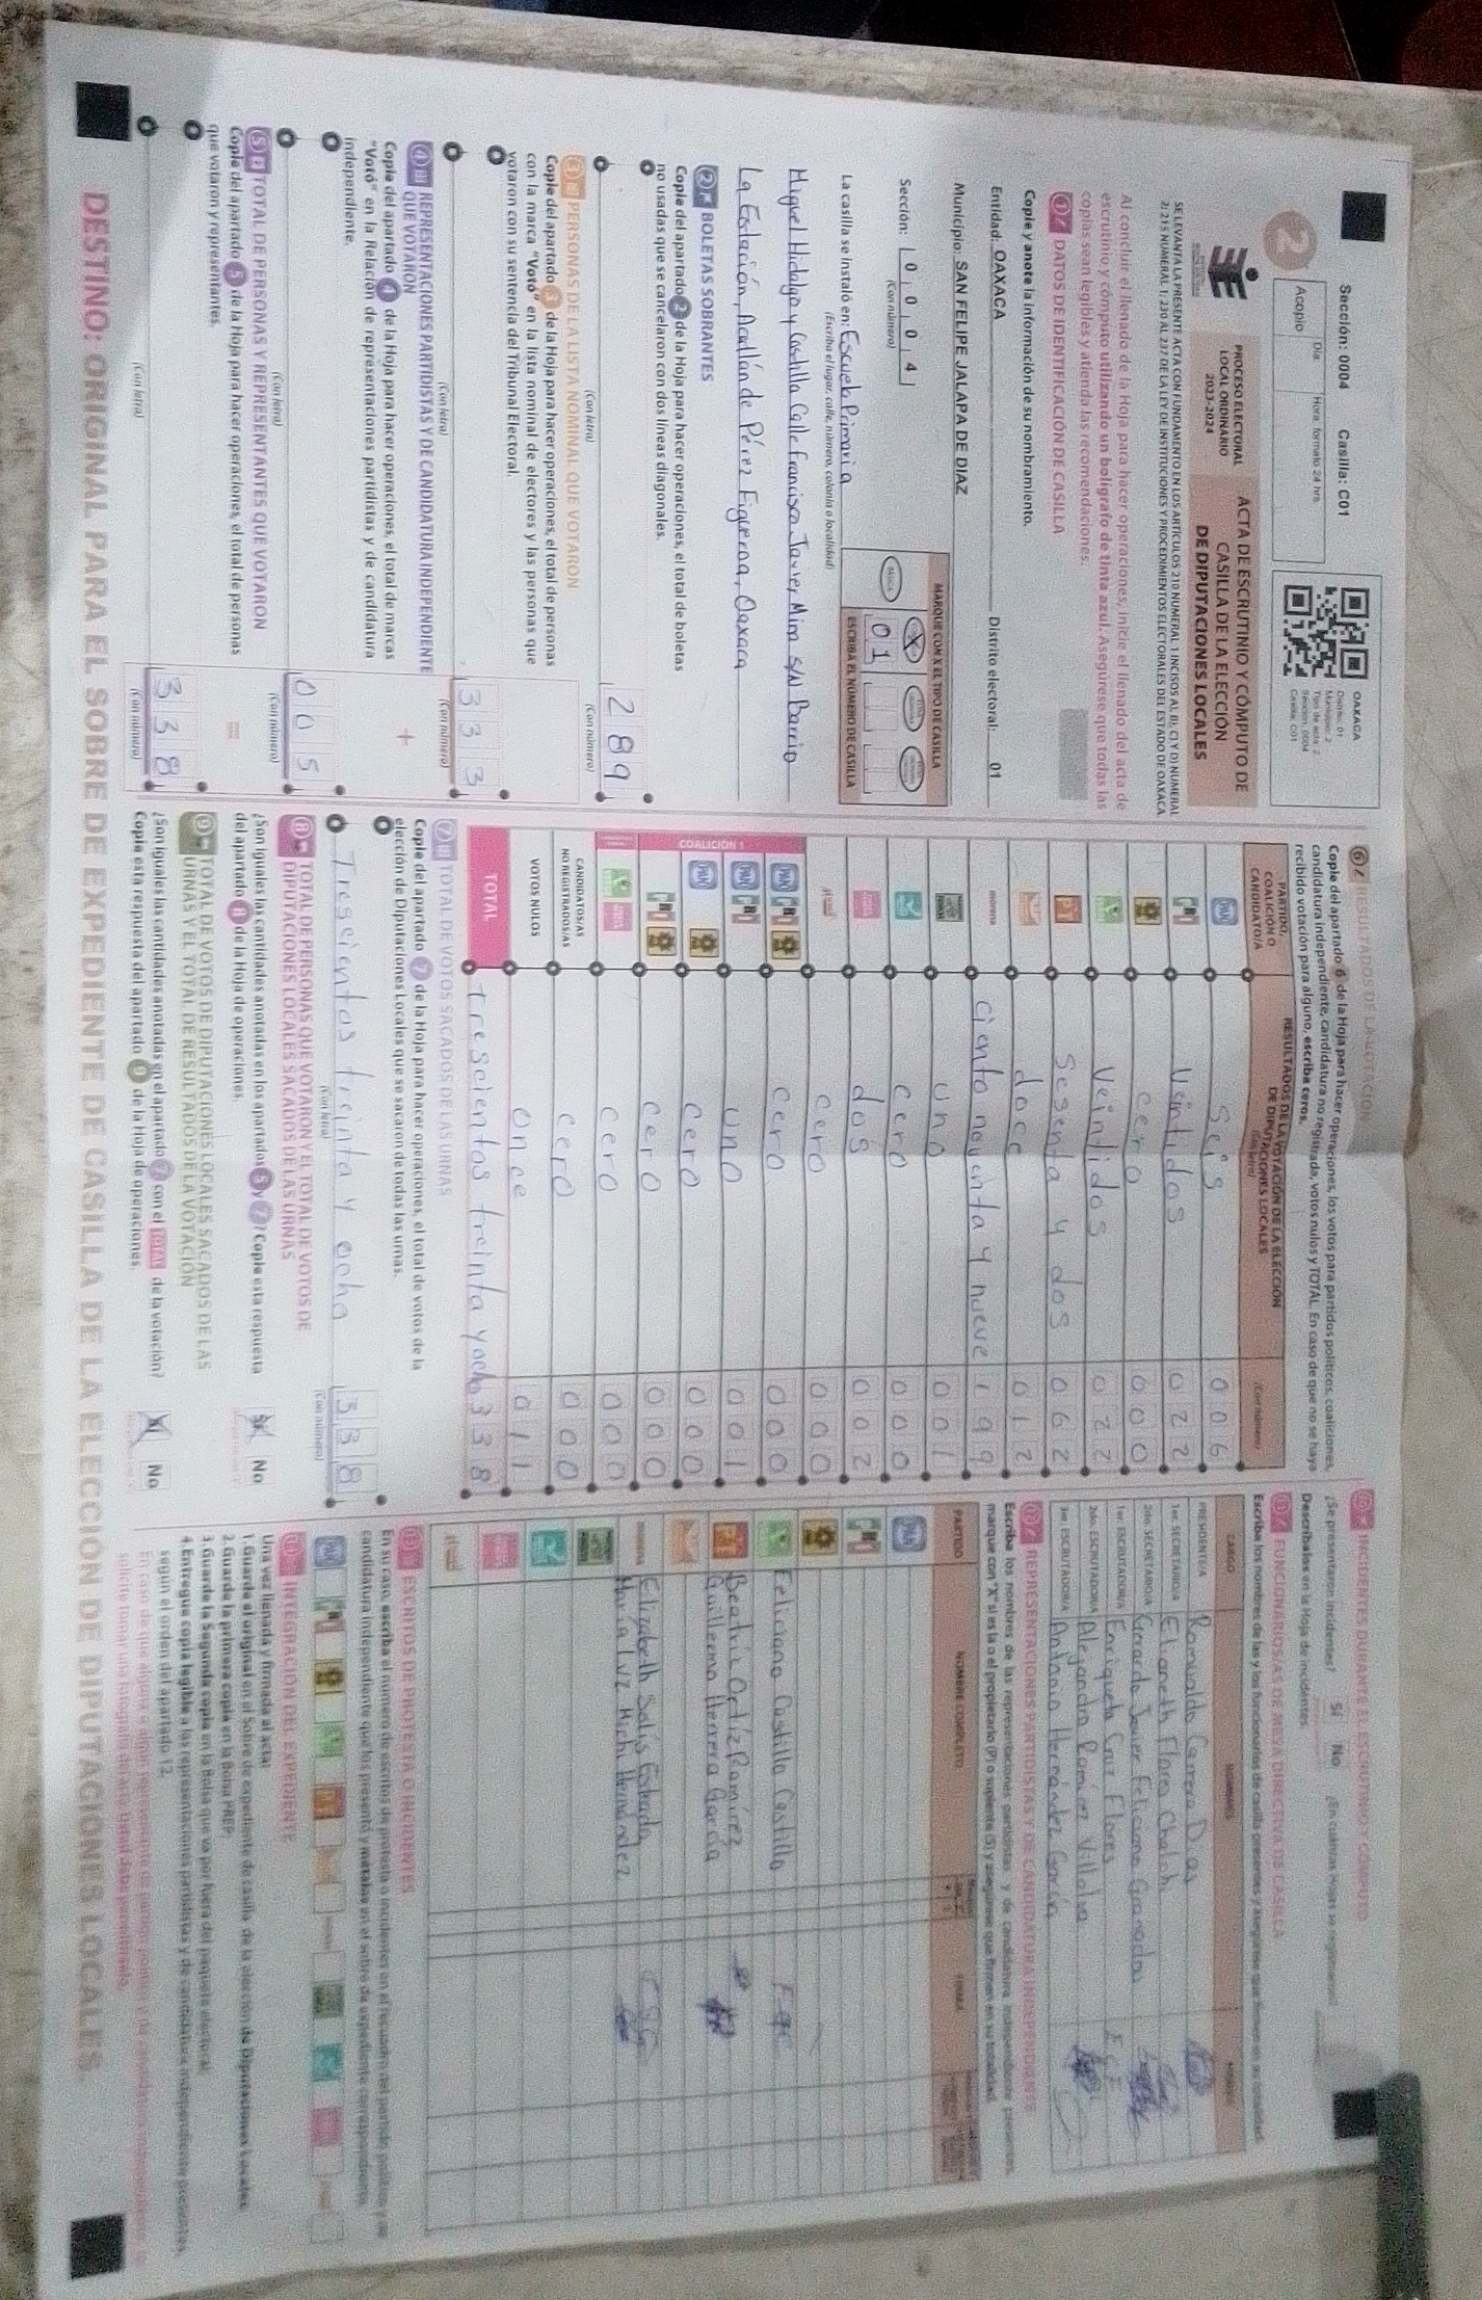 Sección: 0004 Casilla: C01
Día: Hora: formato 24 hrs.
Acopio
2
OAXACA
Distrito: 01
Municipio: 2
Tipo de acta: 2
Sección: 0004
Casilla: C01
PROCESO ELECTORAL
LOCAL ORDINARIO
2023-2024
ACTA DE ESCRUTINIO Y CÓMPUTO DE
CASILLA DE LA ELECCIÓN
DE DIPUTACIONES LOCALES
SE LEVANTA LA PRESENTE ACTA CON FUNDAMENTO EN LOS ARTÍCULOS 210 NUMERAL 1 INCISOS A), B), C) Y D) NUMERAL
2; 215 NUMERAL 1; 230 AL 237 DE LA LEY DE INSTITUCIONES Y PROCEDIMIENTOS ELECTORALES DEL ESTADO DE OAXACA
Al concluir el llenado de la Hoja para hacer operaciones, inicie el llenado del acta de
escrutinio y cómputo utilizando un bolígrafo de tinta azul. Asegúrese que todas las
copias sean legibles y atienda las recomendaciones.
1 DATOS DE IDENTIFICACIÓN DE CASILLA
Copie y anote la información de su nombramiento.
Entidad: OAXACA Distrito electoral: 01
Municipio: SAN FELIPE JALAPA DE DIAZ
Sección: 0 0 0 4
(Con número)
MARQUE CON X EL TIPO DE CASILLA
BÁSICA X
0 1
ESCRIBA EL NÚMERO DE CASILLA
La casilla se instaló en: Escuela Primaria
(Escriba el lugar, calle, número, colonia o localidad)
Miguel Hidalgo y Costilla Calle Francisco Javier Mina S/N Barrio
La Estación, Acatlán de Pérez Figueroa, Oaxaca
2 BOLETAS SOBRANTES
Copie del apartado 2 de la Hoja para hacer operaciones, el total de boletas
no usadas que se cancelaron con dos líneas diagonales.
2 8 9
(Con letra) (Con número)
3 PERSONAS DE LA LISTA NOMINAL QUE VOTARON
Copie del apartado 3 de la Hoja para hacer operaciones, el total de personas
con la marca "Votó" en la lista nominal de electores y las personas que
votaron con su sentencia del Tribunal Electoral.
3 3 3
(Con letra) (Con número)
4 REPRESENTACIONES PARTIDISTAS Y DE CANDIDATURA INDEPENDIENTE
QUE VOTARON
+
Copie del apartado 4 de la Hoja para hacer operaciones, el total de marcas
"Votó" en la Relación de representaciones partidistas y de candidatura
independiente.
0 0 5
(Con letra) (Con número)
5 TOTAL DE PERSONAS Y REPRESENTANTES QUE VOTARON
=
Copie del apartado 5 de la Hoja para hacer operaciones, el total de personas
que votaron y representantes.
3 3 8
(Con letra) (Con número)
6 RESULTADOS DE LA VOTACIÓN
Copie del apartado 6 de la Hoja para hacer operaciones, los votos para partidos políticos, coaliciones,
candidatura independiente, candidatura no registrada, votos nulos y TOTAL. En caso de que no se haya
recibido votación para alguno, escriba ceros.
PARTIDO,
COALICIÓN O
CANDIDATO/A
RESULTADOS DE LA VOTACIÓN DE LA ELECCIÓN
DE DIPUTACIONES LOCALES
(Con letra) (Con número)
PAN Seis 0 0 6
PRI Veintidos 0 2 2
cero 0 0 0
Veintidos 0 2 2
PT Sesenta y dos 0 6 2
doce 0 1 2
morena Ciento noventa y nueve 1 9 9
uno 0 0 1
cero 0 0 0
dos 0 0 2
cero 0 0 0
COALICIÓN 1
PAN PRI cero 0 0 0
PAN PRI uno 0 0 1
PAN cero 0 0 0
PRI cero 0 0 0
cero 0 0 0
CANDIDATOS/AS
NO REGISTRADOS/AS cero 0 0 0
VOTOS NULOS once 0 1 1
TOTAL trescientos treinta y ocho 3 3 8
7 TOTAL DE VOTOS SACADOS DE LAS URNAS
Copie del apartado 7 de la Hoja para hacer operaciones, el total de votos de la
elección de Diputaciones Locales que se sacaron de todas las urnas.
Trescientos treinta y ocho 3 3 8
(Con letra) (Con número)
8 TOTAL DE PERSONAS QUE VOTARON Y EL TOTAL DE VOTOS DE
DIPUTACIONES LOCALES SACADOS DE LAS URNAS
¿Son iguales las cantidades anotadas en los apartados 5 y 7? Copie esta respuesta
del apartado 8 de la Hoja de operaciones.
Sí No
9 TOTAL DE VOTOS DE DIPUTACIONES LOCALES SACADOS DE LAS
URNAS Y EL TOTAL DE RESULTADOS DE LA VOTACIÓN
¿Son iguales las cantidades anotadas en el apartado 7 con el TOTAL de la votación?
Copie esta respuesta del apartado 9 de la Hoja de operaciones.
Sí No
INCIDENTES DURANTE EL ESCRUTINIO Y CÓMPUTO
¿Se presentaron incidentes? Sí No ¿En cuántas Hojas se registraron?
Descríbalos en la Hoja de incidentes.
FUNCIONARIOS/AS DE MESA DIRECTIVA DE CASILLA
Escriba los nombres de las y los funcionarios de casilla presentes y asegúrese que firmen en su totalidad.
CARGO NOMBRES FIRMAS
PRESIDENTE/A Romualdo Carrera Dias
1er. SECRETARIO/A Elianeth Flores Chalchi
2do. SECRETARIO/A Gerardo Javier Feliciano Granados
1er. ESCRUTADOR/A Enriqueta Cruz Flores E.C.F
2do. ESCRUTADOR/A Alejandra Ramírez Villalva
3er. ESCRUTADOR/A Antonio Hernández García
REPRESENTACIONES PARTIDISTAS Y DE CANDIDATURA INDEPENDIENTE
Escriba los nombres de las representaciones partidistas y de candidatura independiente presentes,
marque con "X" si es la o el propietario (P) o suplente (S) y asegúrese que firmen en su totalidad.
PARTIDO NOMBRE COMPLETO FIRMA
PAN
PRI
Feliciano Castillo Castillo
PT Beatriz Ortíz Ramírez
Guillermo Herrera García
morena Elizabeth Solís Estrada
María Luz Michi Hernández
ESCRITOS DE PROTESTA O INCIDENTES
En su caso, escriba el número de escritos de protesta o incidentes en el recuadro del partido político y/o
candidatura independiente que los presentó y métalos en el sobre de expediente correspondiente.
INTEGRACIÓN DEL EXPEDIENTE
Una vez llenada y firmada el acta:
1.Guarde el original en el Sobre de expediente de casilla de la elección de Diputaciones Locales.
2.Guarde la primera copia en la Bolsa PREP.
3.Guarde la Segunda copia en la Bolsa que va por fuera del paquete electoral.
4.Entregue copia legible a las representaciones partidistas y de candidatura independiente presentes,
según el orden del apartado 12.
DESTINO: ORIGINAL PARA EL SOBRE DE EXPEDIENTE DE CASILLA DE LA ELECCIÓN DE DIPUTACIONES LOCALES.